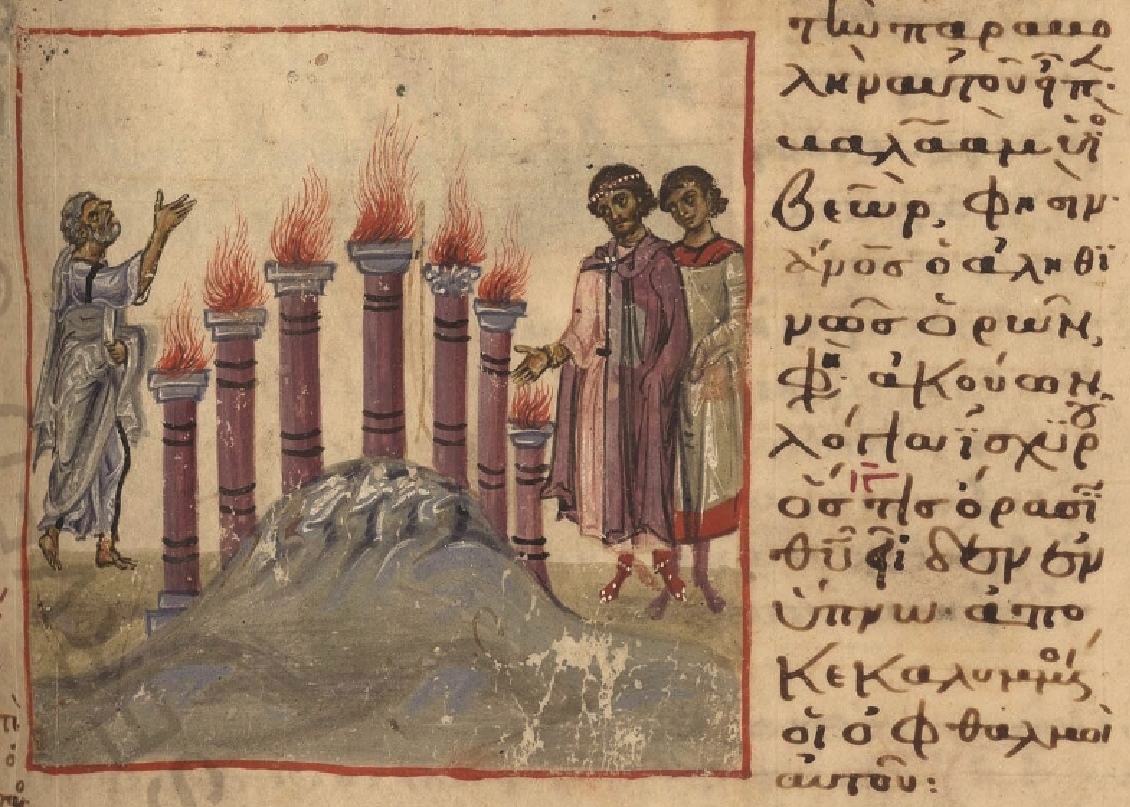 τὴν παραβο
λὴν αὐτοῦ εἶπ·
βαλαὰμ υἱὸ
βεὼρ, φησὶν·
ἄν̅ο̅σ̅ ὁ ἀληθι
νῶσ ὁρῶν,
φη· ἀκούων
λόγια ἰσχυρ
ὅσ τισ ὅρασϊ
θῦ εἶδεν ἐν
ὕπνω· ἀπο
κεκαλυμμ
οἱ ὀφθαλμοὶ
αὐτοῦ: